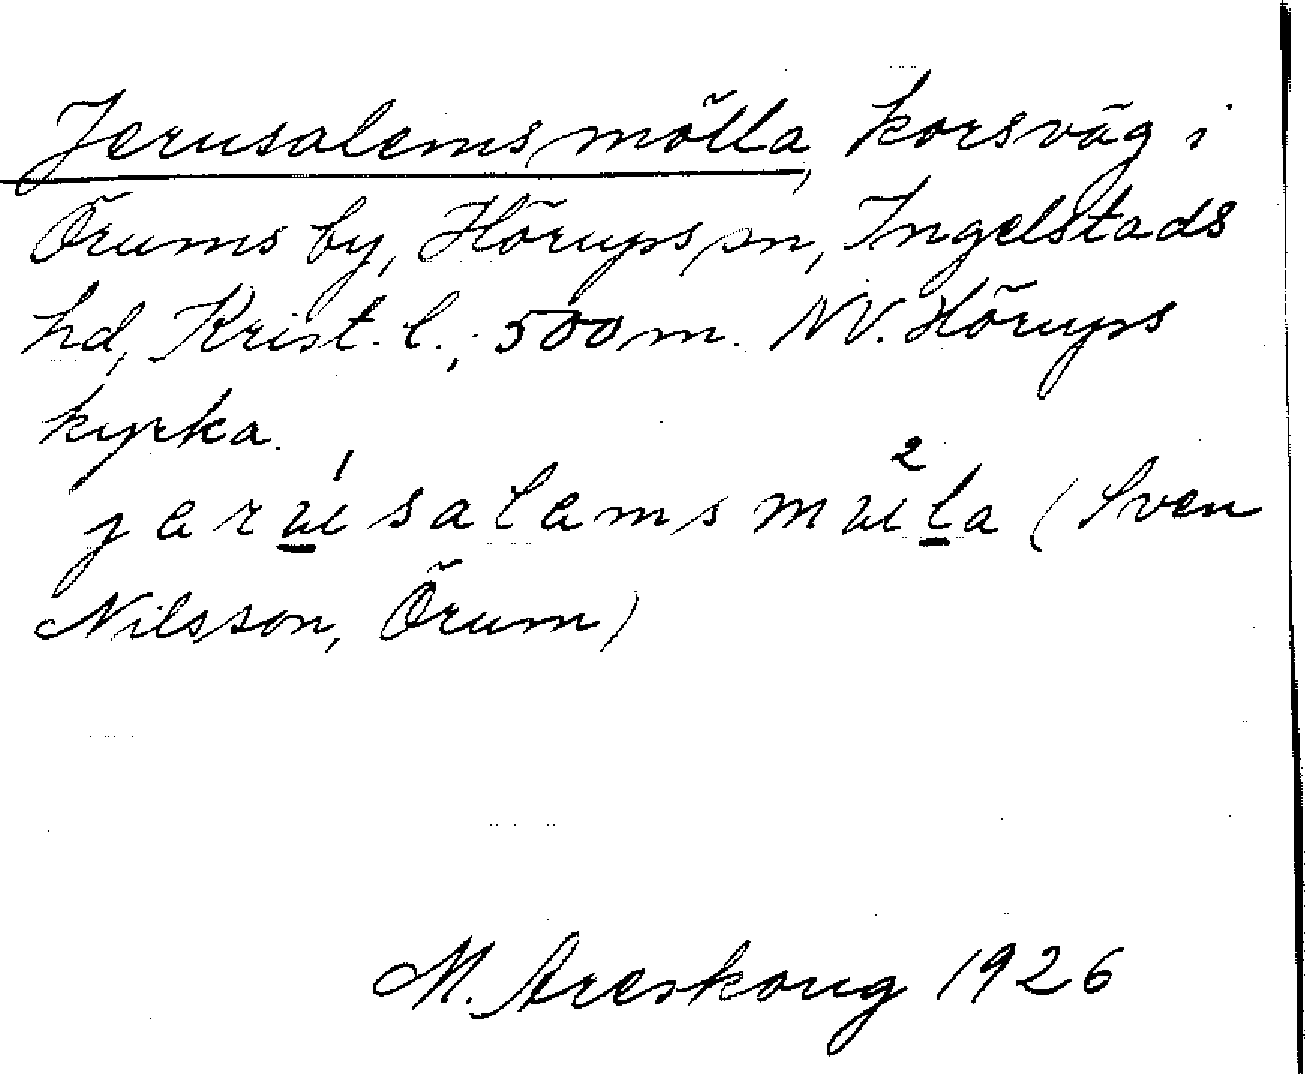 Jerusalemsmölla, korsväg i
Örums by, Hörups sn, Ingelstads
hd, Krist. l., 500 m. NV. Hörups
kyrka.
(Sven
Nilsson, Örum)
M. Areskoug 1926